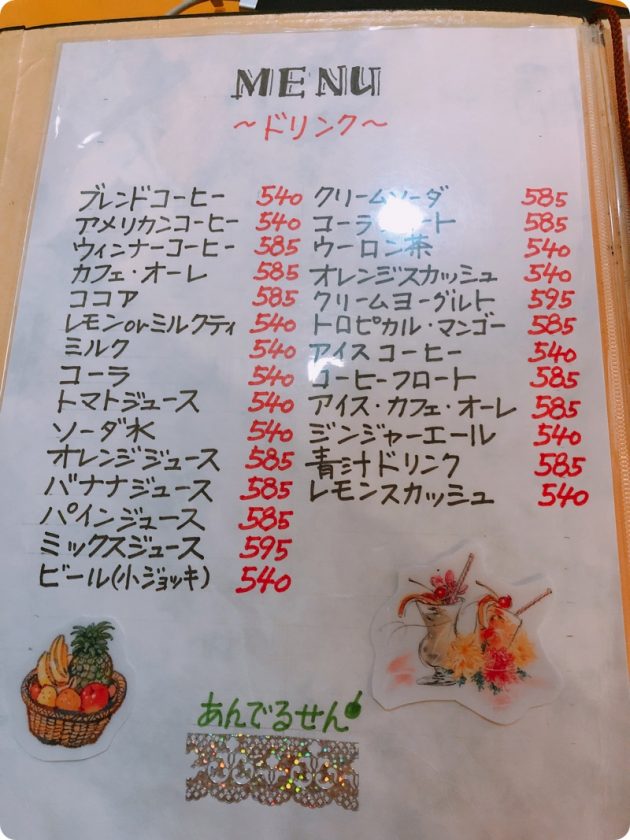 MENU
～ドリンク～
ブレンドコーヒー 540
アメリカンコーヒー 540
ウィンナーコーヒー 585
カフェ・オーレ 585
ココア 585
レモンorミルクティ 540
ミルク 540
コーラ 540
トマトジュース 540
ソーダ水 540
オレンジジュース 585
バナナジュース 585
パインジュース 585
ミックスジュース 595
ビール(小ジョッキ) 540
クリームソーダ 585
585
ウーロン茶 540
オレンジスカッシュ 540
クリームヨーグルト 595
トロピカル・マンゴー 585
アイスコーヒー 540
コーヒーフロート 585
アイス・カフェ・オーレ 585
ジンジャーエール 540
青汁ドリンク 585
レモンスカッシュ 540
あんでるせん